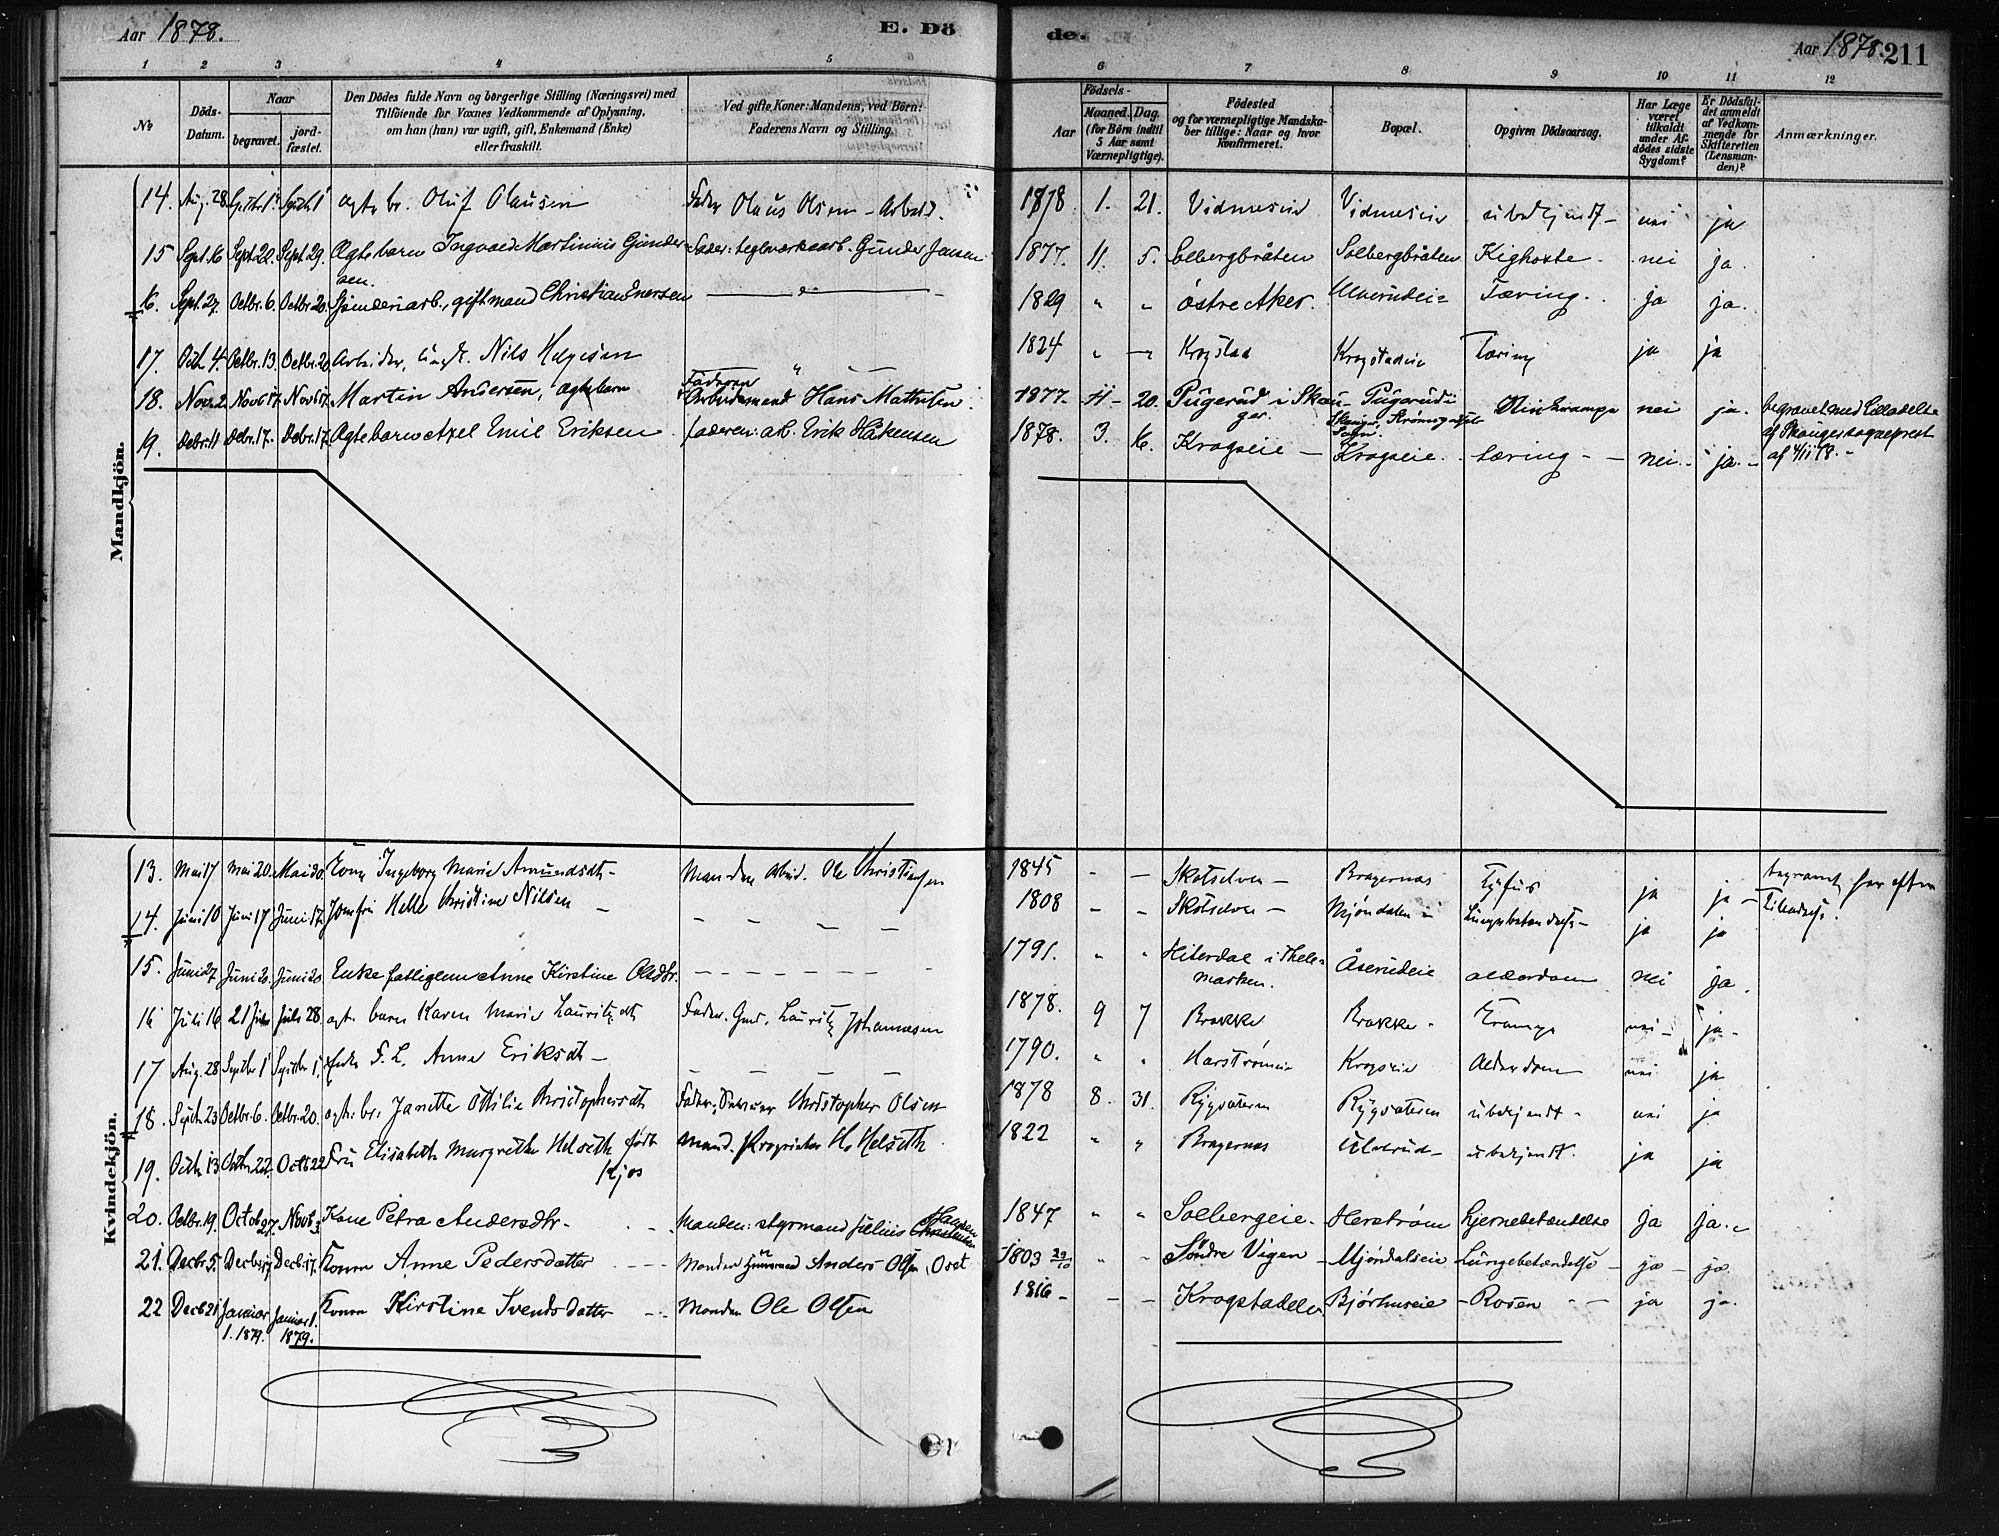 Aar 1878. E. Dö de. Aar 1878. 211
1 2 3 4 5 6 6 7 8 9 10 11 12
No
Döds-Datum.
Naar
begravet.
jord-fæstet.
Den Dödes fulde Navn og borgerlige Stilling (Næringsvei) med
Tilföiende for Voxnes Vedkommende af Oplysning,
om han (hun) var ugift, gift, Enkemand (Enke)
eller fraskilt.
Ved gifte Koner: Mandens, ved Börn:
Faderens Navn og Stilling.
Födsels-
Aar
Maaned. Dag.
(for Börn indtil
5 Aar samt
Værnepligtige).
Födested
og for værnepligtige Mandska-
ber tillige: Naar og hvor
konfirmeret.
Bopæl.
Opgiven Dödsaarsag.
Har Læge
været
tilkaldt
under Af-
dödes sidste
Sygdom?
Er Dödsfal-
det anmeldt
af Vedkom-
mende for
Skifteretten
(Lensman-
den)?
Anmærkninger.
Mandkjön.
14. Aug. 28 Septbr. 1 Septbr 1 ægte br. Oluf Olausen Fader Olaus Olsen - Arbeid. 1878 1. 21. Vidmeseie Vidmeseie ubekjendt - nei ja
15 Sept. 16 Sept 22. Sept. 29. Ægtebarn Ingvald Martinius Gunder- Fader: teglværksarb. Gunder Jansen 1877. 11. 5. Solbergbråten Solbergbråten Kighoste - nei ja.
sen.
16. Sept. 27. Octbr. 6. Octbr. 20. Spinderiarb., gift mand Christian Iversen 1829 " " östre Aker. Ulverudeie Tæring. ja ja.
17. Octb. 4. Octbr. 13 Octbr. 20 Arbeider, Nils Helgesen " 1824 " " Krogstad Krogstadeie Tæring ja ja
18. Nov. 2 Novb 17. Novb 17. Martin Andersen, ægtebarn Faderen Arbeidsmand Hans Mathisen 1877. 11 - 20. Pugerud i Skou- Pugerud i nei ja. begravet med Tilladelse
ger. Skouger, Strømsgodset Sogn. af Skougers sogneprest
19. Debr. 11 Debr. 17. Debr. 17. Ægtebarn Axel Emil Eriksen faderen: arb. Erik Håkensen 1878. 3. 16. Krogseie - Krogseie. tæring - nei. - ja. - af 4/11 78. -
Kvindekjön.
13. Mai 17 Mai 20. Mai 20 Kone Ingeborg Marie Amundsdtr - Manden Arbeid. Ole Christensen 1845 - - Skotselven - Bragernæs Tyfus ja ja - begravet her efter
14. Juni 10 Juni 17 Juni 17. Jomfru Helle Christine Nilsen - - - - - 1808 - - Skotselven - Mjöndalen - Lungebetændelse - ja ja Tilladelse.
15. Juni 27 Juni 20. Juni 20 Enke fattiglem Anne Kirstine Olsdtr. - - - - - 1791. " " Hiterdal i Thele- Åserudeie alderdom nei ja.
marken.
16 Juli 16 21 Juli Juli 28 ægte barn Karen Marie Lauritzdtr Fader. Gmd. Lauritz Johannesen 1878. 9 7 Brække Brække - Krampe nei - ja -
17 Aug. 28 Septbr 1 Septbr 1. Enke F. L. Anne Eriksdtr - - - - 1790. " " Harströmeie Krogseie Alderdom nei ja
18. Septb. 23 Octbr. 6. Octbr. 20. ægte br. Janette Ottilie Christophersdtr Fader, Christopher Olsen 1878 8. 31. Rygsæteren Rygsæteren ubekjendt - nei ja
19. Octb. 13 Octbr. 22. Octb. 22 Fru Elisabeth Margrethe Helseth født Mand. Proprietær H. Helseth 1822 " " Bragernæs Ulverud - ubekjendt. ja ja
Kjos
20. Octbr. 19. Octob 27. Novb 3 Kone Petra Andersdtr - - Manden: styrmand Julius Hansen 1847 " " Solbergeie. Herstrøm hjernebetændelse ja ja. -
21. Decbr. 5. Decb 17. Decb. 17. Konen Anne Pedersdatter - - Manden Huusmand Anders Olsen, Oset 1803 29/10 " " Söndre Vigen - Mjöndalseie Lungebetændelse - ja - ja.
22 Decb 21 Januar Januar 1. Konen Kirstine Svendsdatter - - Manden Ole Olsen 1816 - - - Krogstadelv. Bjørhuseie - Rosen - - ja ja.
1. 1879. 1879.